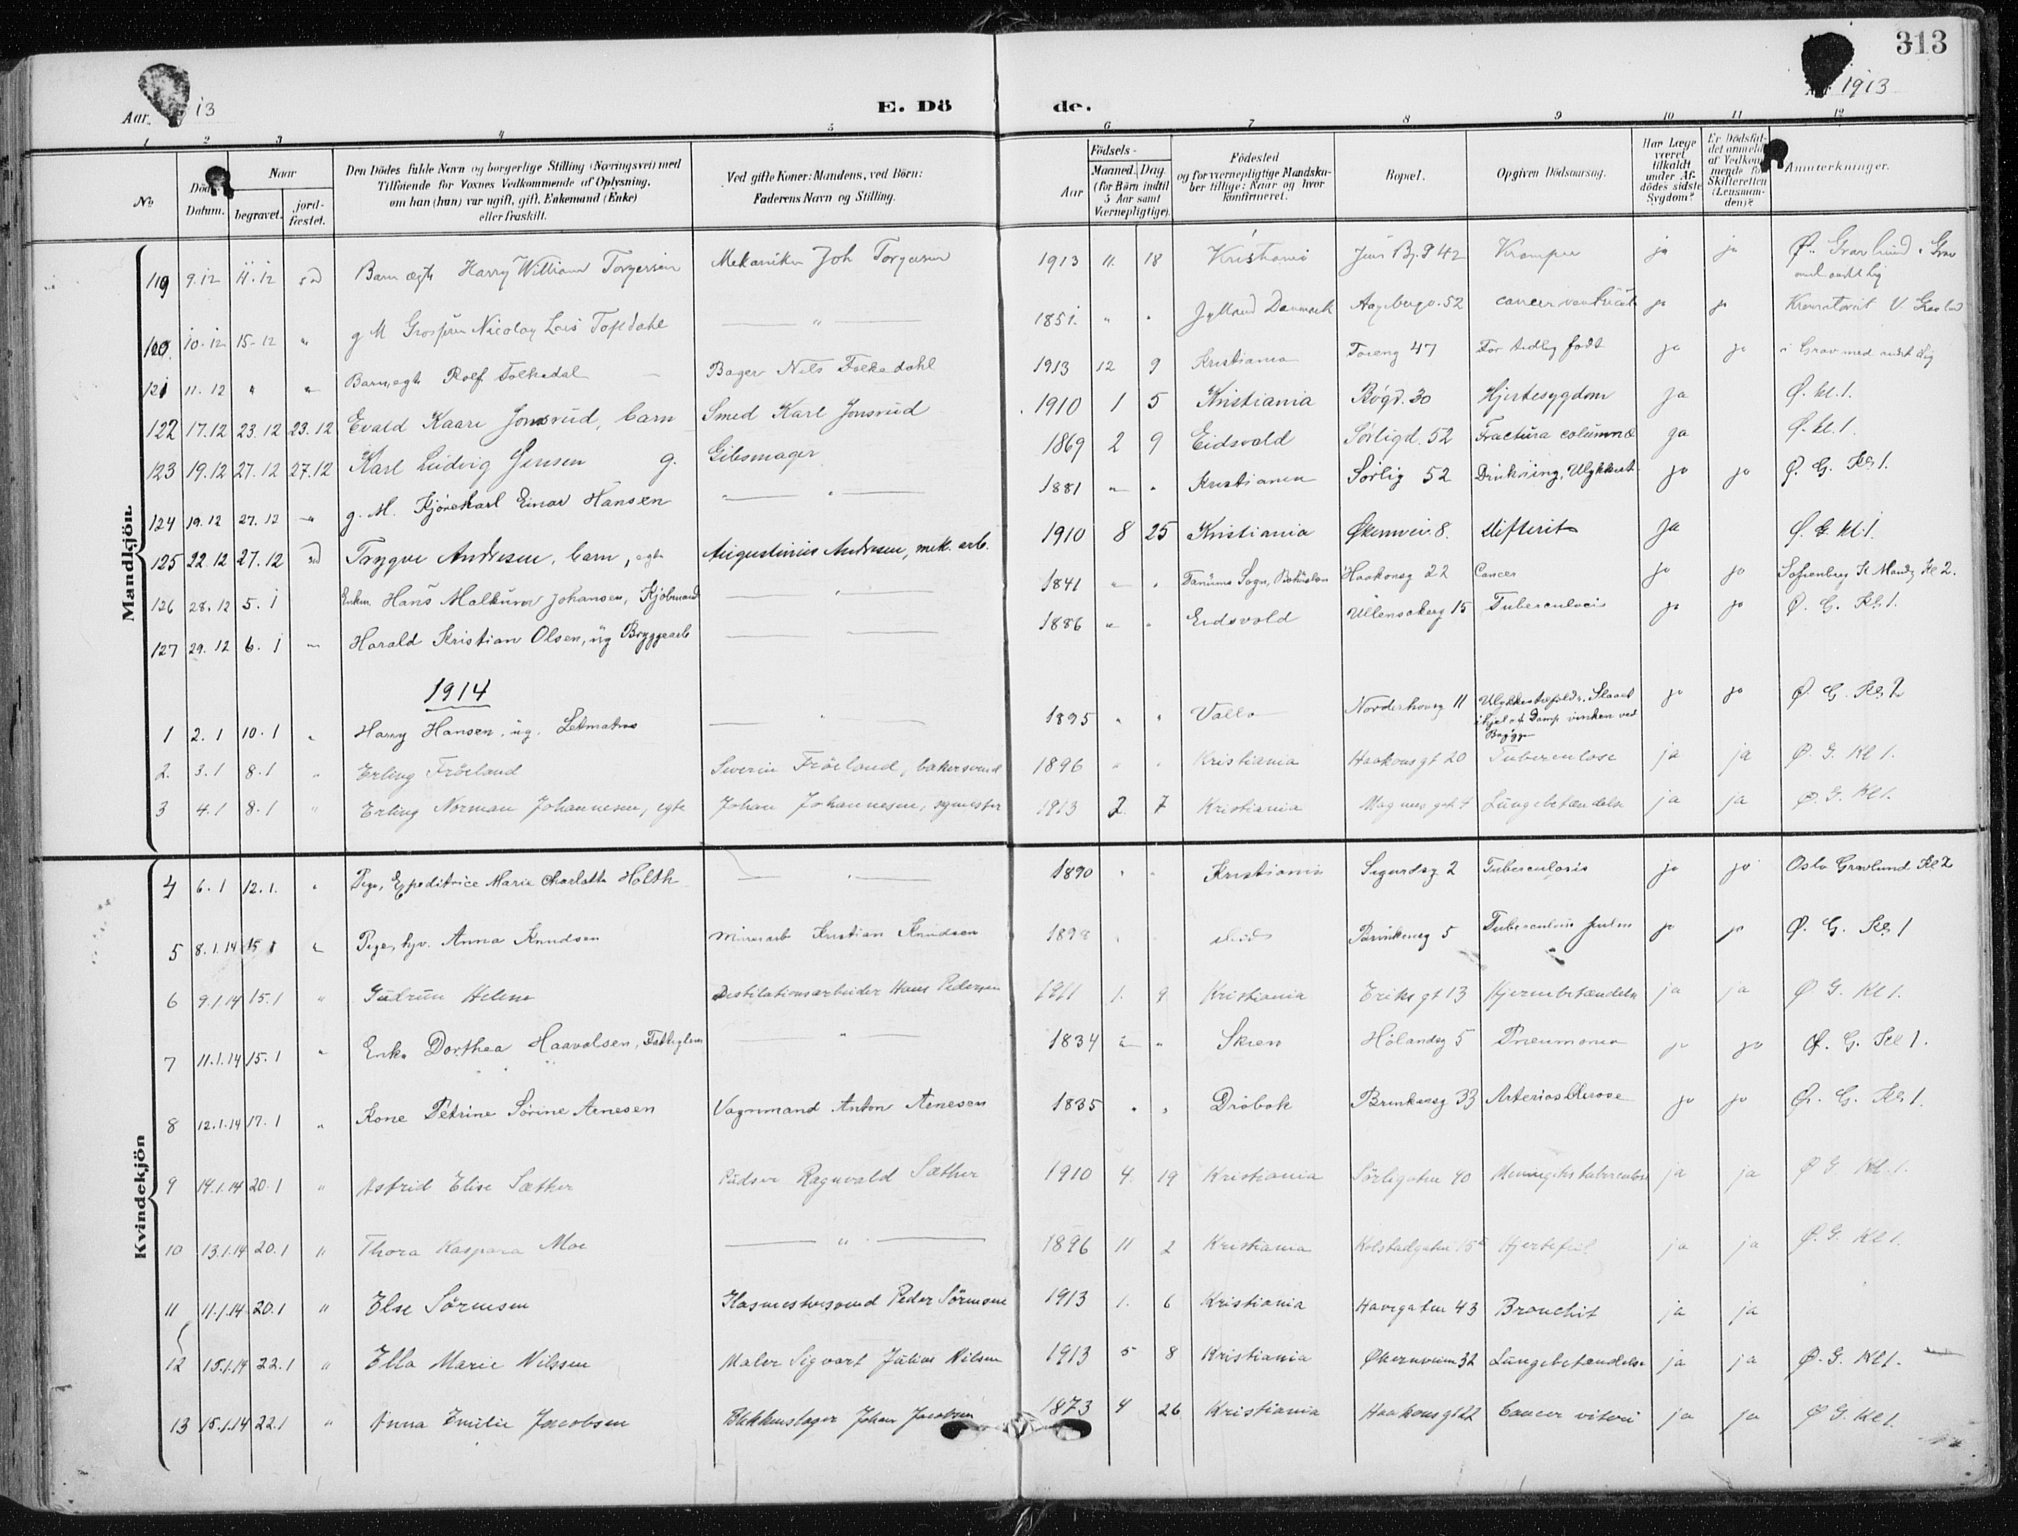 313
Aar 13
E. Dö de.
1913
1 2 3 4 5 6 7 8 9 10 11 12
No
Datum.
Naar
begravet.
jord-
fæstet.
Den Dödes fulde Navn og borgerlige Stilling (Næringsvei) med
Tilföiende for Voxnes Vedkommende af Oplysning,
om han (hun) var ugift, gift, Enkemand (Enke)
eller fraskilt.
Ved gifte Koner: Mandens, ved Börn:
Faderens Navn og Stilling.
Födsels-
Aar
Maaned. Dag
(for Börn indtil
5 Aar samt
Værnepligtige).
Födested
og for værnepligtige Mandska-
ber tillige: Naar og hvor
konfirmeret.
Bopæl.
Opgiven Dödsaarsag.
Har Læge
været
tilkaldt
under Af-
dödes sidste
Sygdom?
Er Dödsfal-
det anmeldt
af Vedkom-
mende for
Skifteretten
(Lensman-
den)?
Anmerkninger.
Mandkjön.
119 9.12 11.12 Barn ægte Harry William Torgersen Mekaniker Joh Torgersen 1913 11. 18 Kristiania 42 Krampe ja ja Ø. Gravlund i Grav
120 10.12 15-12 " g M Nicolay Tofldahl " 1851. " " Jylland Danmark 52 cancer ja ja V. Gravlund
121 11.12 " " Barn ægte Rolf Folkedal Bager Nils Folkedahl 1913 12 9 Kristiania Toieng 47 For tidlig født ja ja i Grav med andet Lig
122 17.12 23.12 23.12 Evald Kaare Jonsrud, barn Smed Karl Jonsrud 1910 1 5 Kristiania Bøgd. 30 Hjertesygdom ja Ø. kl. 1.
123 19.12 27.12 27.12 Karl Ludvig Jensen g. Gibsmager 1869 2 9 Eidsvold Sörligd. 52 Fractura columnæ ja Ø. kl. 1.
124 19.12 27.12 " g. M. Kjörekarl Einar Hansen " 1881 " " Kristiania Sørlig 52 Drukning, Ulykkest. ja ja Ø. G. Kl 1.
125 22.12 27.12 Trygve Andresen, barn, egte Augustinius Andresen, mek. arb. 1910 8 25 Kristiania Økernvei. 8. difterit ja Ø. G. kl. 1.
126 28.12 5.1 Enkem Hans Johansen, Kjøbmand " 1841 " " Tanums Sogn, Bohuslen Haakonsg 22 Cancer ja ja Kl 2.
127 29.12 6.1 " Harald Kristian Olsen, ug Bryggearb " 1886 " " Eidsvold Ullensakerg 15 Tuberculocis ja ja Ø. G. Kl 1.
1914
1 2.1 10.1 " Harry Hansen, ug. Letmatros " 1895 " " Vallø Norderhovsg 11 Ulykkestilfælde, Slaaet ja ja Ø. G. Kl 2
ihjel af Damp vinken ved
Brygge
2. 3.1 8.1 " Erling Fröeland Severin Fröeland, bakersvend 1896 " " Kristiania Haakonsgt 20 Tuberculose ja ja Ø. G. Kl 1.
3 4.1 8.1 " Erling Norman Johannesen, egte Johan Johannesen, 1913 2. 7 Kristiania Magnusgt 4 Lungebetændelse ja ja Ø. G. Kl 1.
Kvindekjön
4 6.1 12.1. " Pige, Expeditrice Marie Charlotte Holth " 1890 " " Kristiania Sigurdsg 2 Tuberculosis ja ja Oslo Gravlund Kl 2
5 8.1.14 15.1 " Pige, hjv. Anna Knudsen Murerarb Kristian Knudsen 1898 Brinkensg 5 Tuberculosis pulm ja ja Ø. G. Kl 1
6 9.1.14 15.1 " Gudrun Helene Destilationsarbeider Hans Pedersen 1911 1. 9 Kristiania Eriks gt 13 Hjernebetændelse ja ja Ø. G. Kl 1.
7 11.1.14 15.1 " Enke Dorthea Haavalsen, Fattiglem " 1834 " " Skien Hölandsg 5 Pneumonia ja ja Ø. G. Kl 1.
8 12.1.14 17.1 " Kone Petrine Sörine Arnesen Vognmand Anton Arnesen 1835 " " Dröbak Brinkensg 33 Arteriosklerose ja ja Ø. G. Kl 1.
9 14.1.14 20.1 " Astrid Elise Sæther Pudser Ragnvald Sæther 1910 4. 19 Kristiania Sörligaten 40 ja ja Ø G. Kl. 1.
10 13.1.14 20.1 " Thora Kaspara Moe " 1896 11 2 Kristiania Kolstadgaten 15 Hjertefeil ja ja Ø. G. Kl 1.
11 11.1.14 20.1 " Else Sörensen Peder Sörensen 1913 1. 6 Kristiania Havegaten 43 Bronchit ja ja
12 15.1.14 22.1 " Ella Marie Nilssen Maler Sigvart Julius Nilsen 1913 5 8 Kristiania Økernveien 32 Lungebetændelse ja ja Ø. G. Kl 1.
13 15.1.14 22.1 " Anna Emilie Jacobsen Blikkenslager Johan Jacobsen 1873 4 26 Kristiania Haakonsgt 22 Cancer uteri ja ja Ø G. Kl 1.